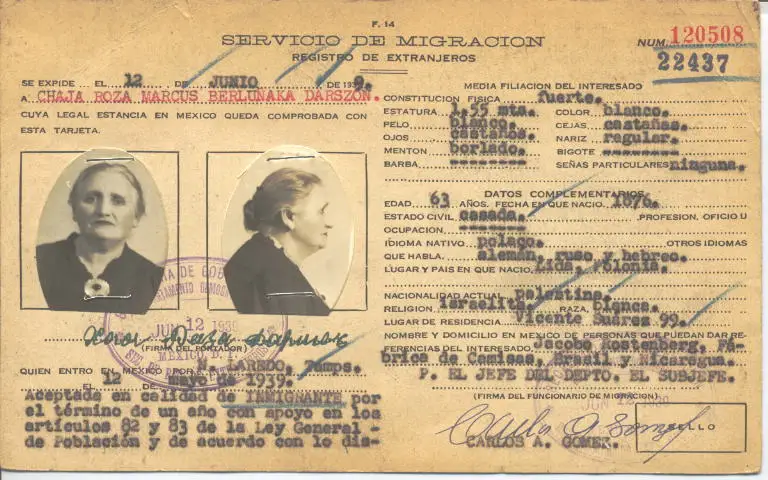 F. 14
SERVICIO DE MIGRACION
REGISTRO DE EXTRANJEROS
NUM. 120508
22437
SE EXPIDE EL 12 DE JUNIO DE 1939.
A CHAJA ROZA MARCUS BERLUNAKA DARSZON.
CUYA LEGAL ESTANCIA EN MEXICO QUEDA COMPROBADA CON
ESTA TARJETA.
JUN 12 1939
MEXICO D.
(FIRMA DEL PORTADOR)
QUIEN ENTRO EN MEXICO POR LAREDO, Tamps.
EL 12 DE mayo de 1939.
Aceptada en calidad de INMIGRANTE por
el término de un año con apoyo en los
artículos 82 y 83 de la Ley General -
de Población y de acuerdo con lo dis-
MEDIA FILIACION DEL INTERESADO
CONSTITUCION FISICA fuerte.
ESTATURA 1.55 mts. COLOR blanco.
PELO blanco. CEJAS castañas.
OJOS castaños. NARIZ regular.
MENTON borlado. BIGOTE --------
BARBA -------- SEÑAS PARTICULARES ninguna.
DATOS COMPLEMENTARIOS
EDAD 63 AÑOS. FECHA EN QUE NACIO 1876.
ESTADO CIVIL casada. PROFESION, OFICIO U
OCUPACION --------
IDIOMA NATIVO polaco. OTROS IDIOMAS
QUE HABLA. alemán, ruso y hebreo.
LUGAR Y PAIS EN QUE NACIO Lida, Polonia.
NACIONALIDAD ACTUAL palestina.
RELIGION israelita. RAZA. blanca.
LUGAR DE RESIDENCIA Vicente Suarez 99.
NOMBRE Y DOMICILIO EN MEXICO DE PERSONAS QUE PUEDAN DAR RE-
FERENCIAS DEL INTERESADO. Jacobo Kostenberg, Fá-
brica de Camisas, Brasil y Nicaragua.
P. EL JEFE DEL DEPTO. EL SUBJEFE.
(FIRMA DEL FUNCIONARIO DE MIGRACION)
JUN 12 1939
Carlos A Gomez
CARLOS A. GOMEZ.
SELLO